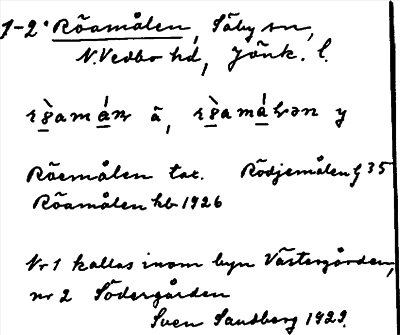 1-2. Röamålen, Säby sn,
N. Vedbo hd, Jönk. l.
ä, y
Röemålen tax. Rödjemålen G 35
Röamålen hb 1926
Nr 1 kallas inom byn Västergården,
nr 2 Södergården
Sven Sandberg 1929.